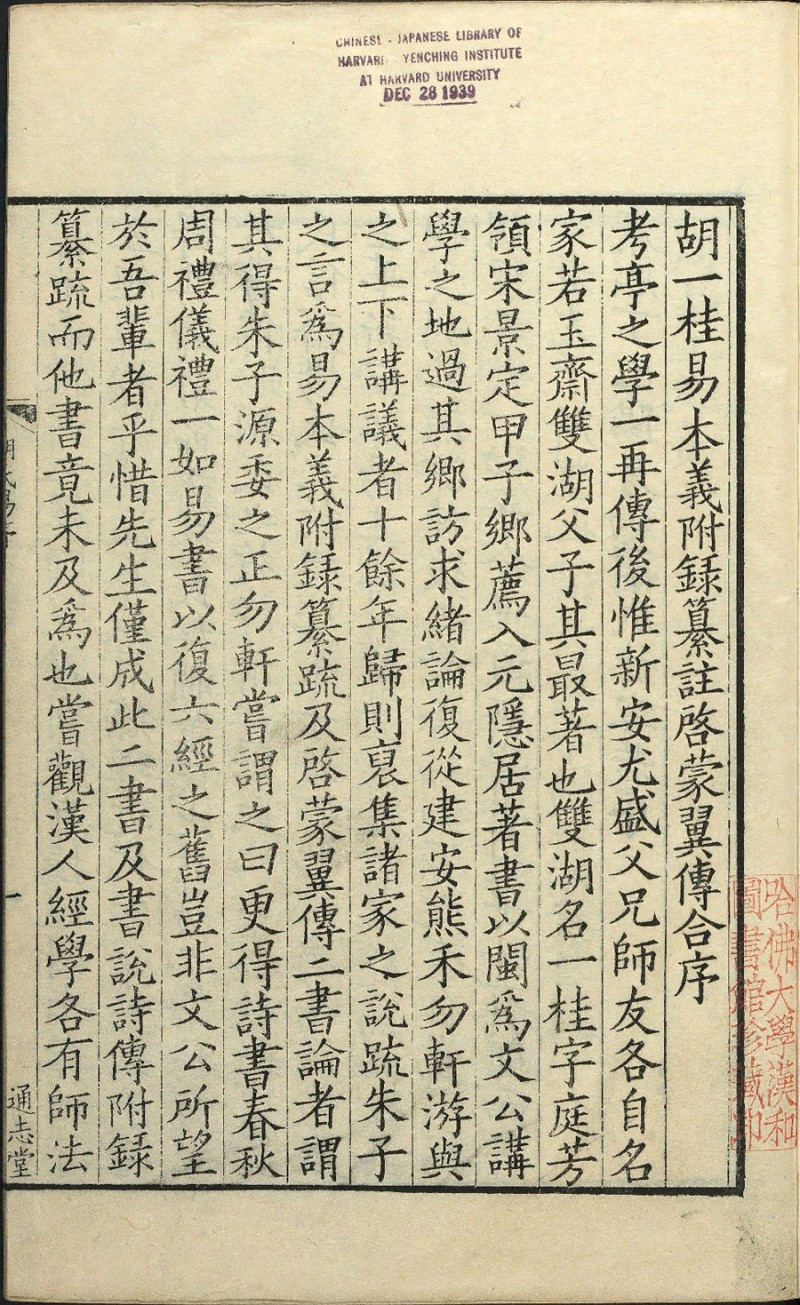 CHINESE - JAPANESE LIBRARY OF
HARVARD YENCHING INSTITUTE
AT HARVARD UNIVERSITY
DEC 28 1939
胡一桂易本義附録纂註啓蒙翼傳合序
考亭之學一再傳後惟新安尤盛父兄師友各自名
家若玉齋雙湖父子其最著也雙湖名一桂字庭芳
領宋景定甲子鄉薦入元隱居著書以閩為文公講
學之地過其鄉訪求緒論復從建安熊禾勿軒游與
之上下講議者十餘年歸則裒集諸家之說疏朱子
之言為易本義附録纂疏及啓蒙翼傳二書論者謂
其得朱子源委之正勿軒嘗謂之曰更得詩書春秋
周禮儀禮一如易書以復六經之舊豈非文公所望
於吾輩者乎惜先生僅成此二書及書說詩傳附録
纂疏而他書竟未及為也嘗觀漢人經學各有師法
一
通志堂
哈佛大學漢和
圖書館珍藏印